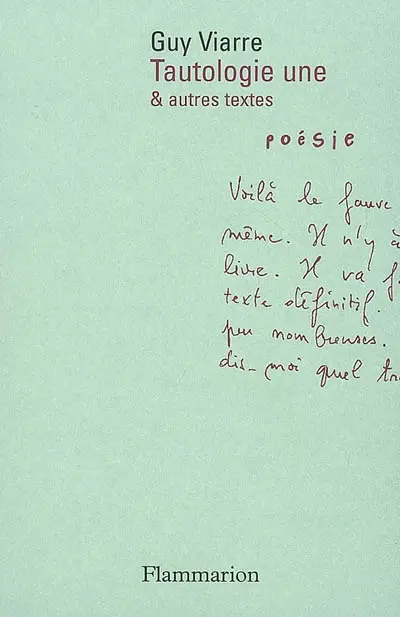 Guy Viarre
Tautologie une
& autres textes
poésie
Voilà le fauve
même. Il n'y à
livre. Il va f
texte définitif.
peu nombreuses.
dis-moi quel tra
Flammarion